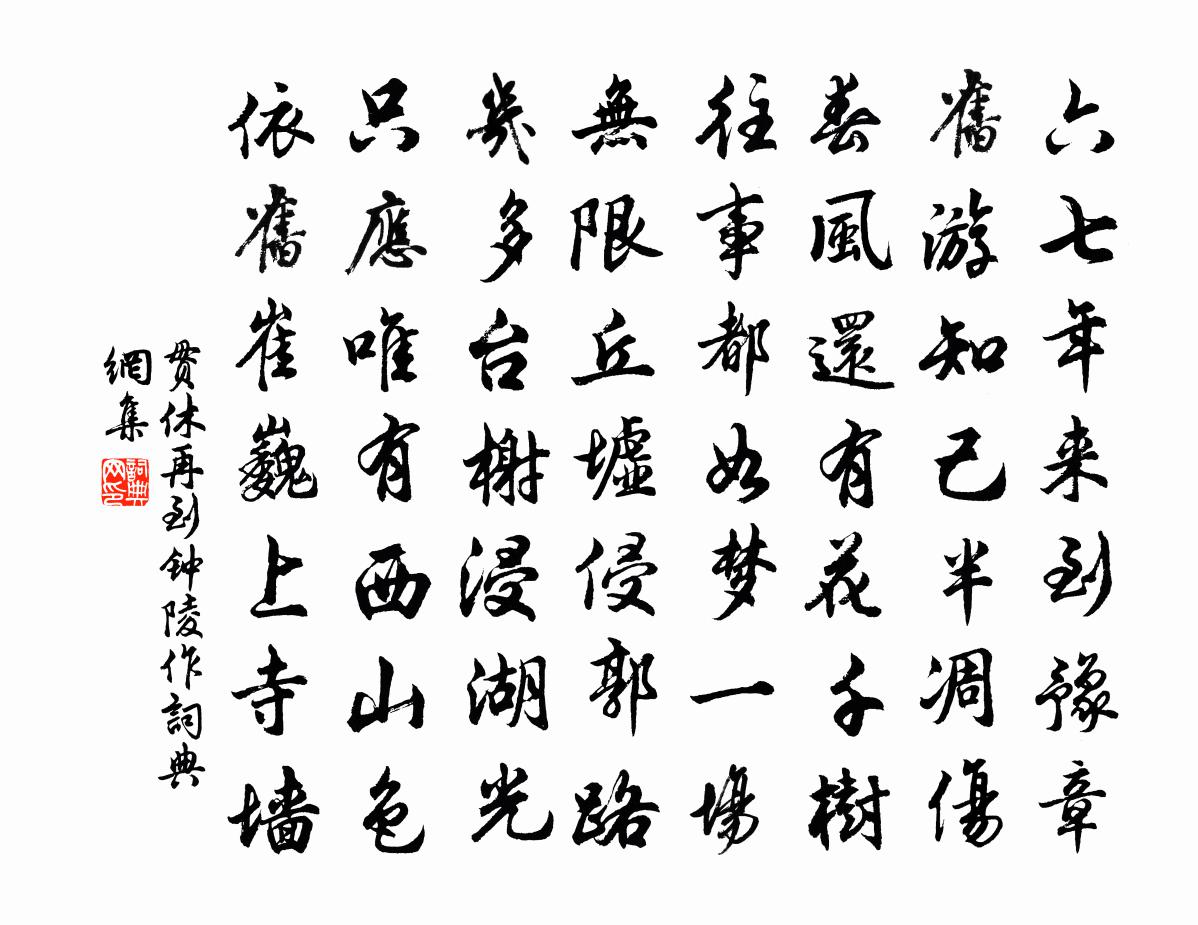 六七年来到豫章
舊游知己半凋傷
春風還有花千樹
往事都如梦一場
無限丘墟侵郭路
幾多台榭浸湖光
只應唯有西山色
依舊崔巍上寺墙
贯休再到钟陵作詞典
網集
詞典
网印